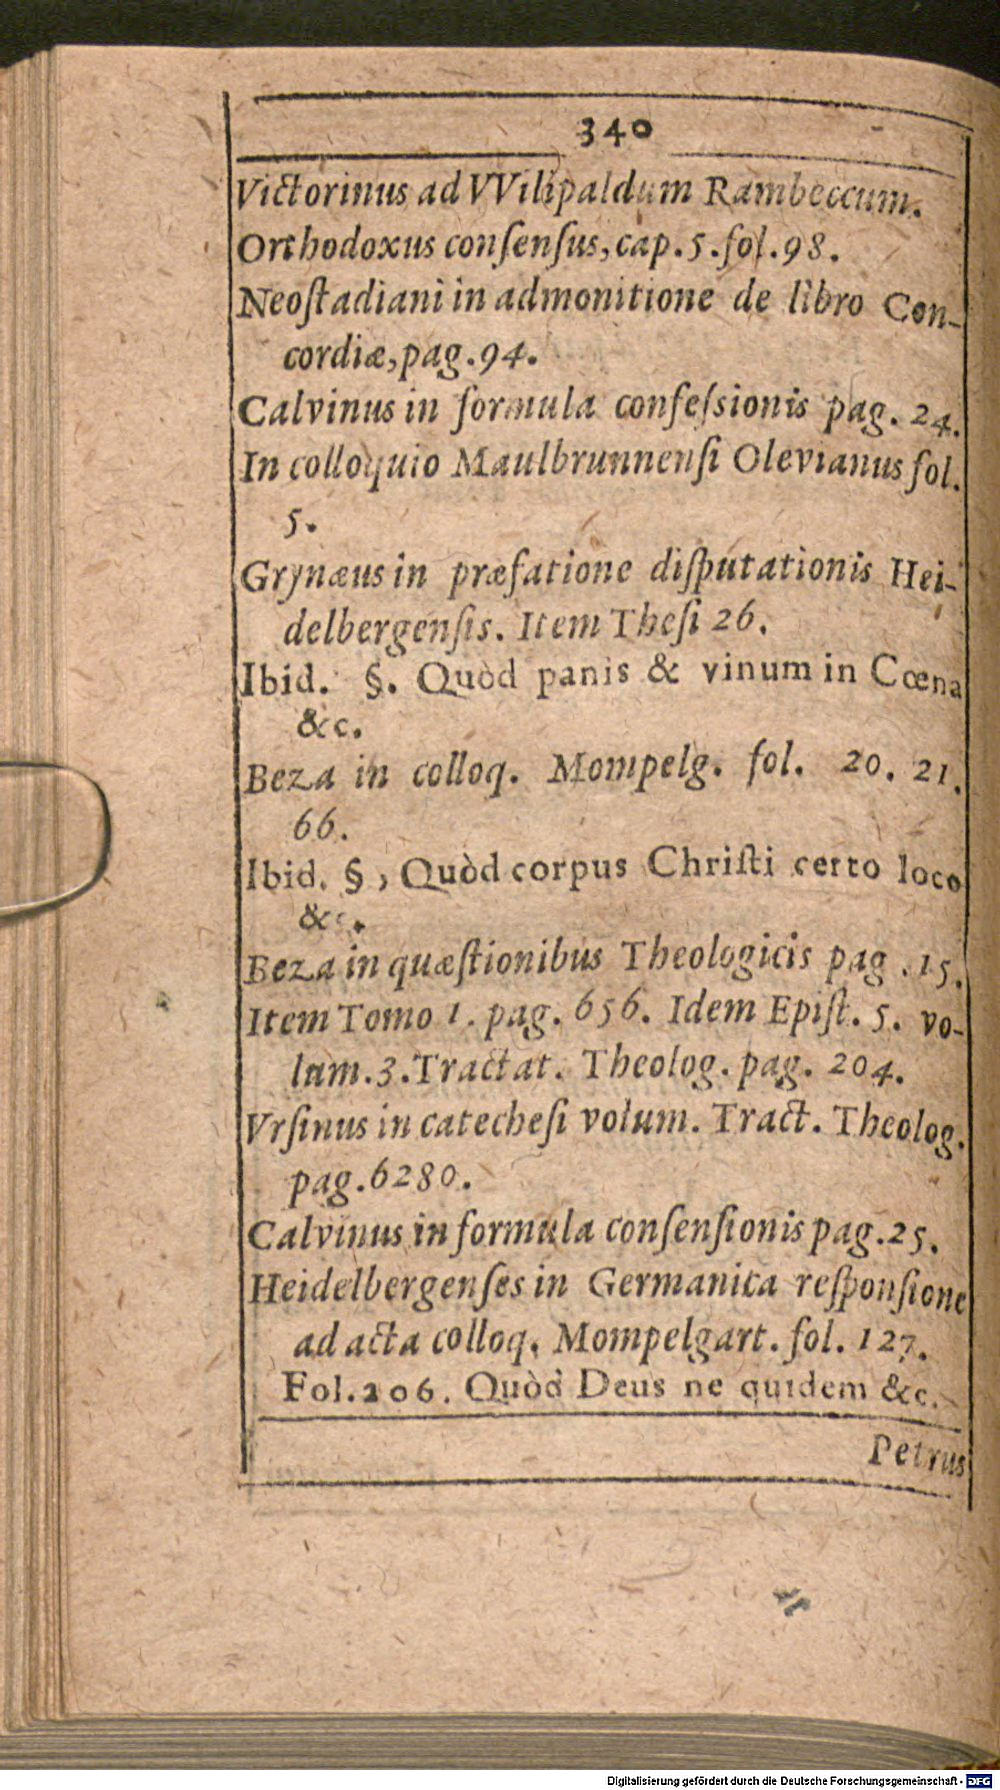 340
Victorinus ad VVilipaldum Rambeccum.
Orthodoxus consensus, cap. 5. fol. 98.
Neostadiani in admonitione de libro Con-
cordiæ, pag. 94.
Calvinus in formula confessionis pag. 24.
In colloquio Maulbrunnensi Olevianus fol.
5.
Grynæus in præfatione disputationis Hei-
delbergensis. Item Thesi 26.
Ibid. §. Quòd panis & vinum in Cœna
&c.
Beza in colloq. Mompelg. fol. 20. 21.
66.
Ibid. §, Quòd corpus Christi certo loco
&c.
Beza in quæstionibus Theologicis pag. 15.
Item Tomo 1. pag. 656. Idem Epist. 5. vo-
lum. 3. Tractat. Theolog. pag. 204.
Vrsinus in catechesi volum. Tract. Theolog.
pag. 6280.
Calvinus in formula consensionis pag. 25.
Heidelbergenses in Germanica responsione
ad acta colloq. Mompelgart. fol. 127.
Fol. 206. Quòd Deus ne quidem &c.
Petrus
Digitalisierung gefördert durch die Deutsche Forschungsgemeinschaft - DFG